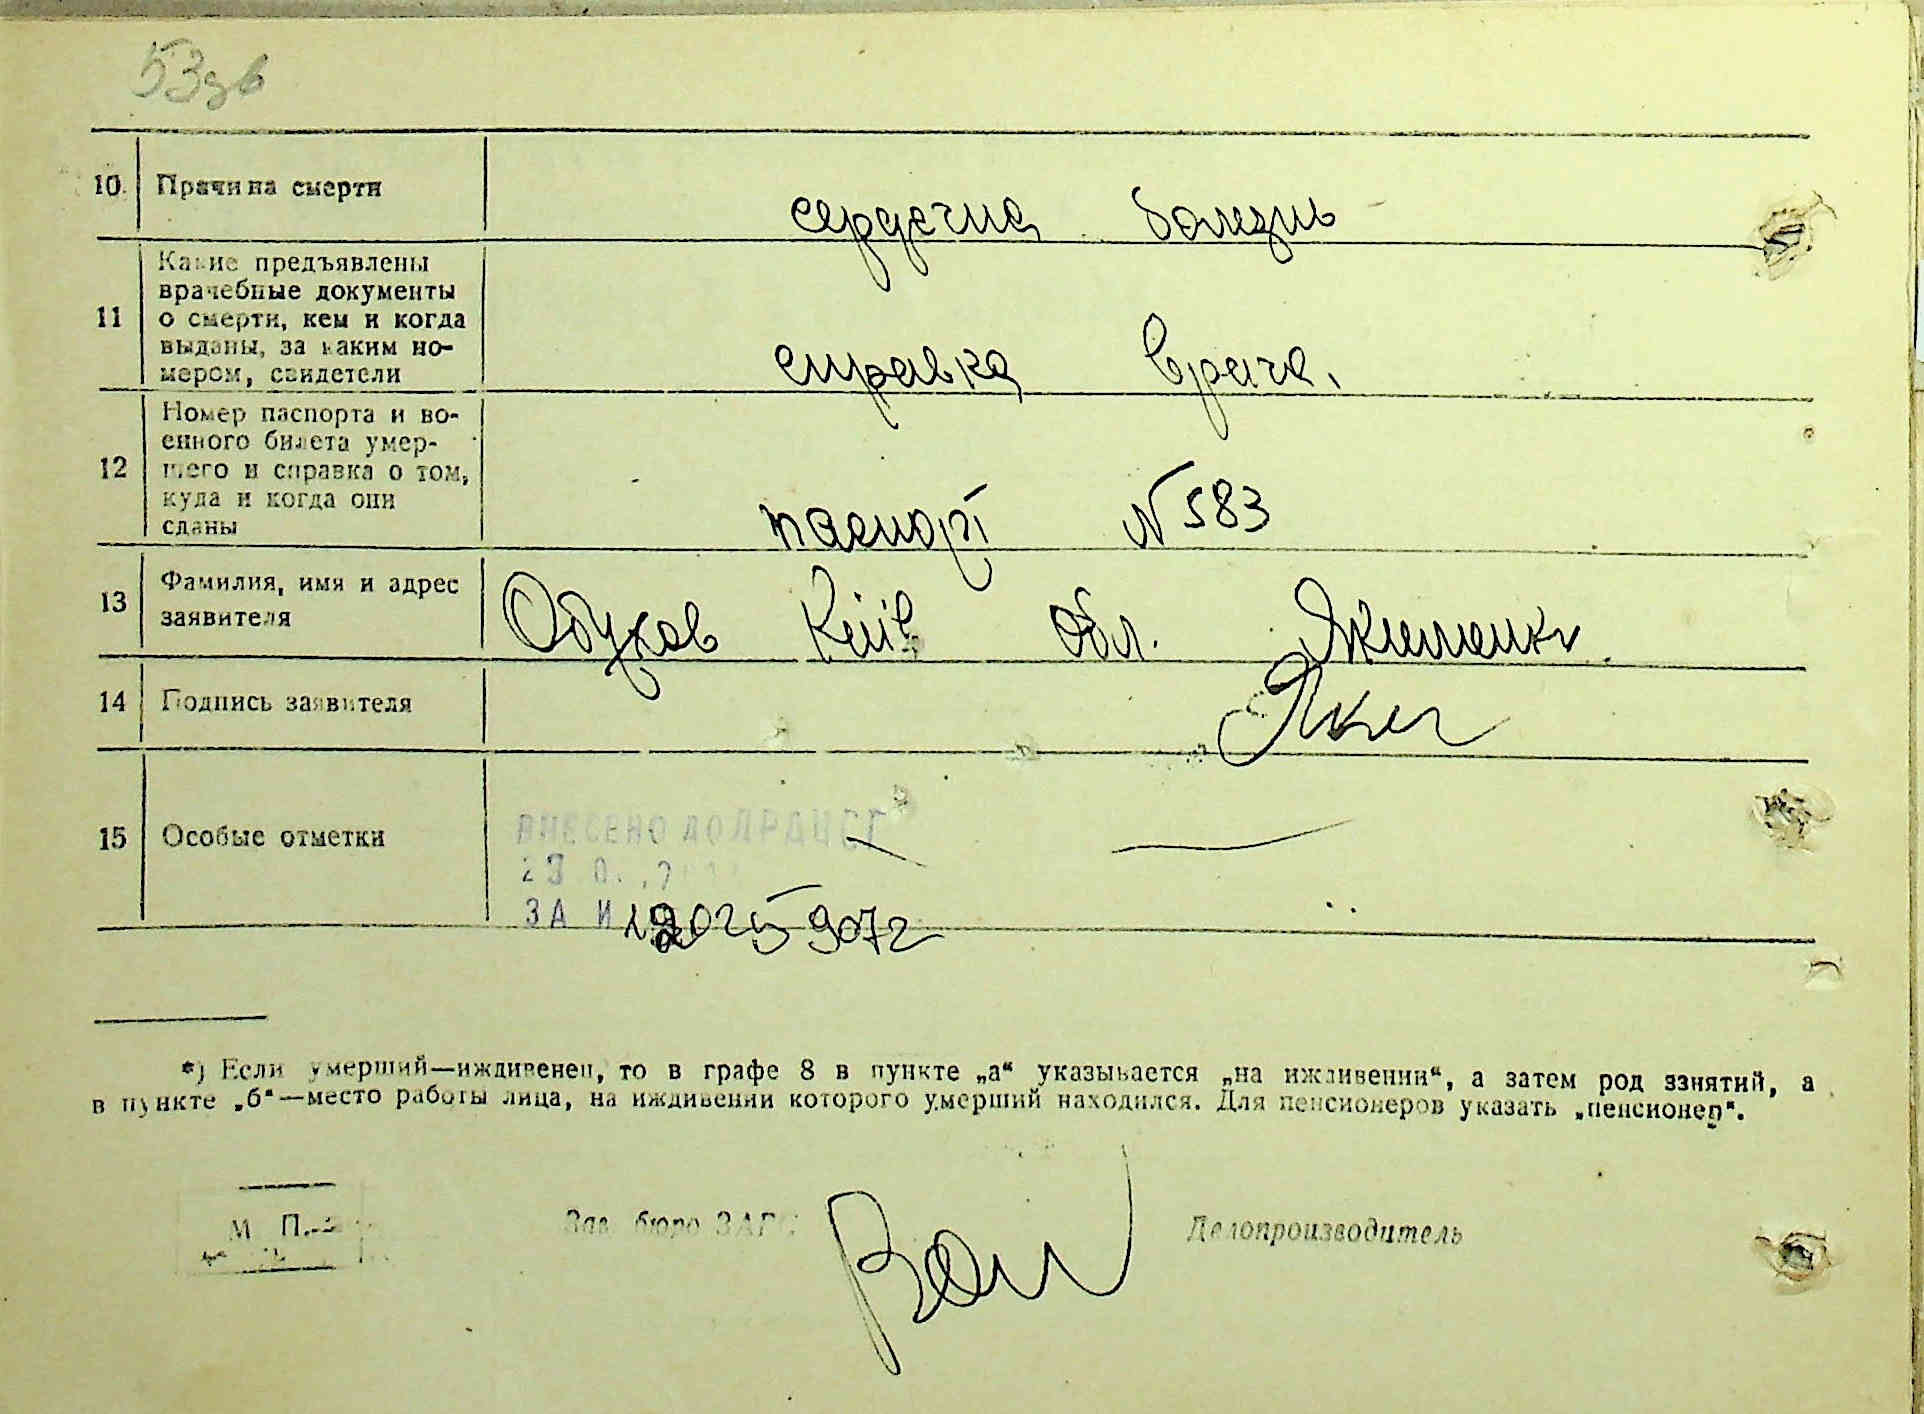 53зв
10. Причина смерти
сердечна болезнь
11 Какие предъявлены
врачебные документы
о смерти, кем и когда
выданы, за каким но-
мером, свидетели
справка врача.
12 Номер паспорта и во-
енного билета умер-
шего и справка о том,
куда и когда они
сданы
паспорт N 583
13 Фамилия, имя и адрес
заявителя
Обухов Київ обл.
14 Подпись заявителя
15 Особые отметки
ВНЕСЕНО ДО ДРАЦСГ
ЗА И
*) Если умерший—иждивенец, то в графе 8 в пункте „а“ указывается „на иждивении“, а затем род занятий, а
в пункте „б“—место работы лица, на иждивении которого умерший находился. Для пенсионеров указать „пенсионер“.
М. П.
Зав. бюро ЗАГС
Делопроизводитель